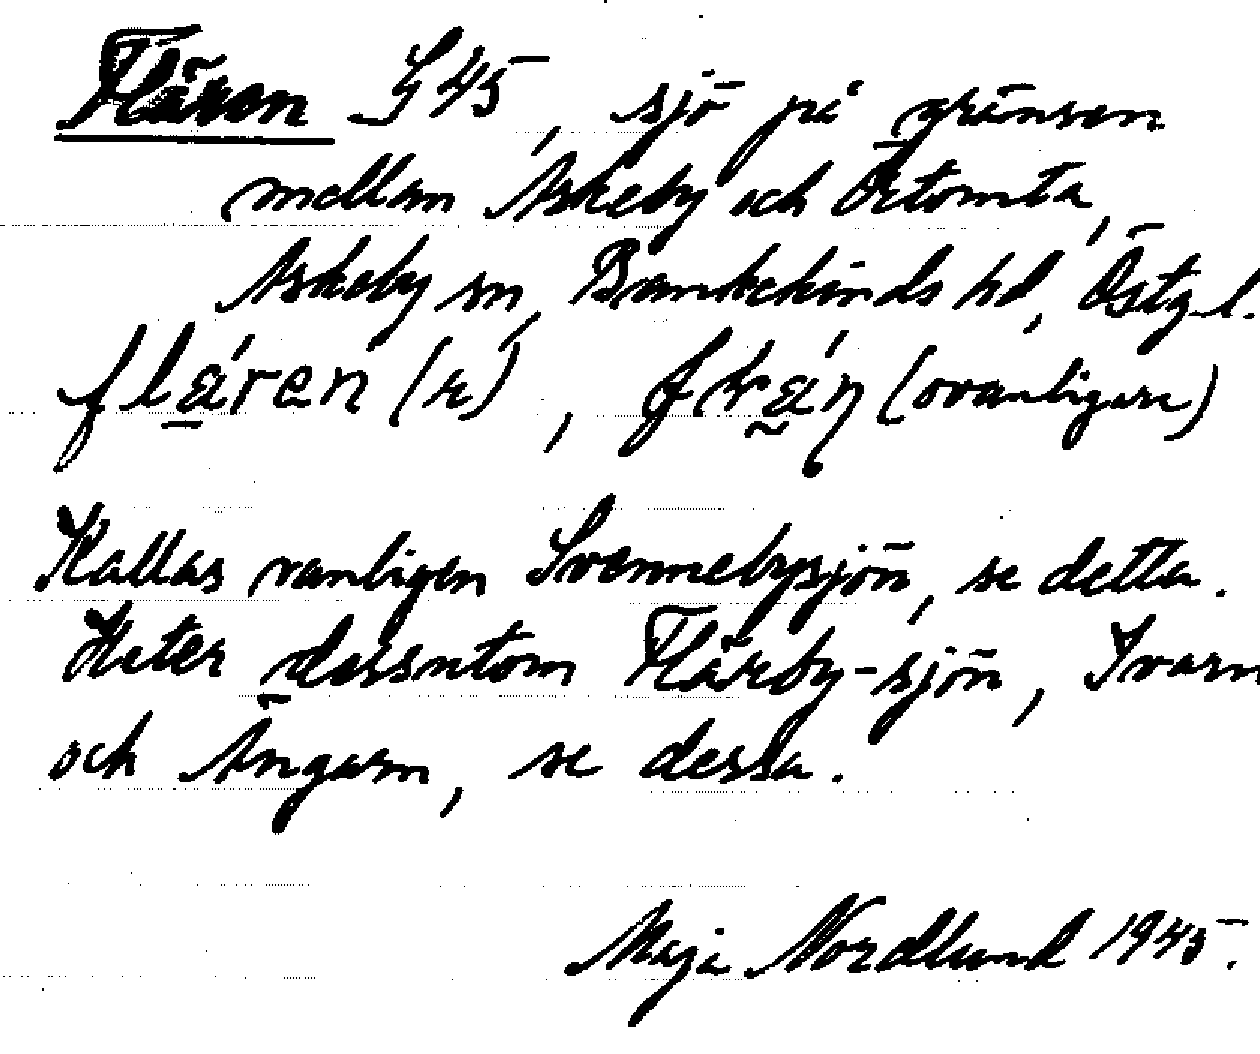 Flären G 45, sjö på gränsen
mellan Askeby och Örtomta,
Askeby sn, Bankekinds hd, Östg. l.
flären (æ), (ovanligare)
Kallas vanligen Svannebysjön, se detta.
Heter dessutom Flärby-sjön, Svarn
och Ängarn, se dessa.
Maja Nordlund 1945.